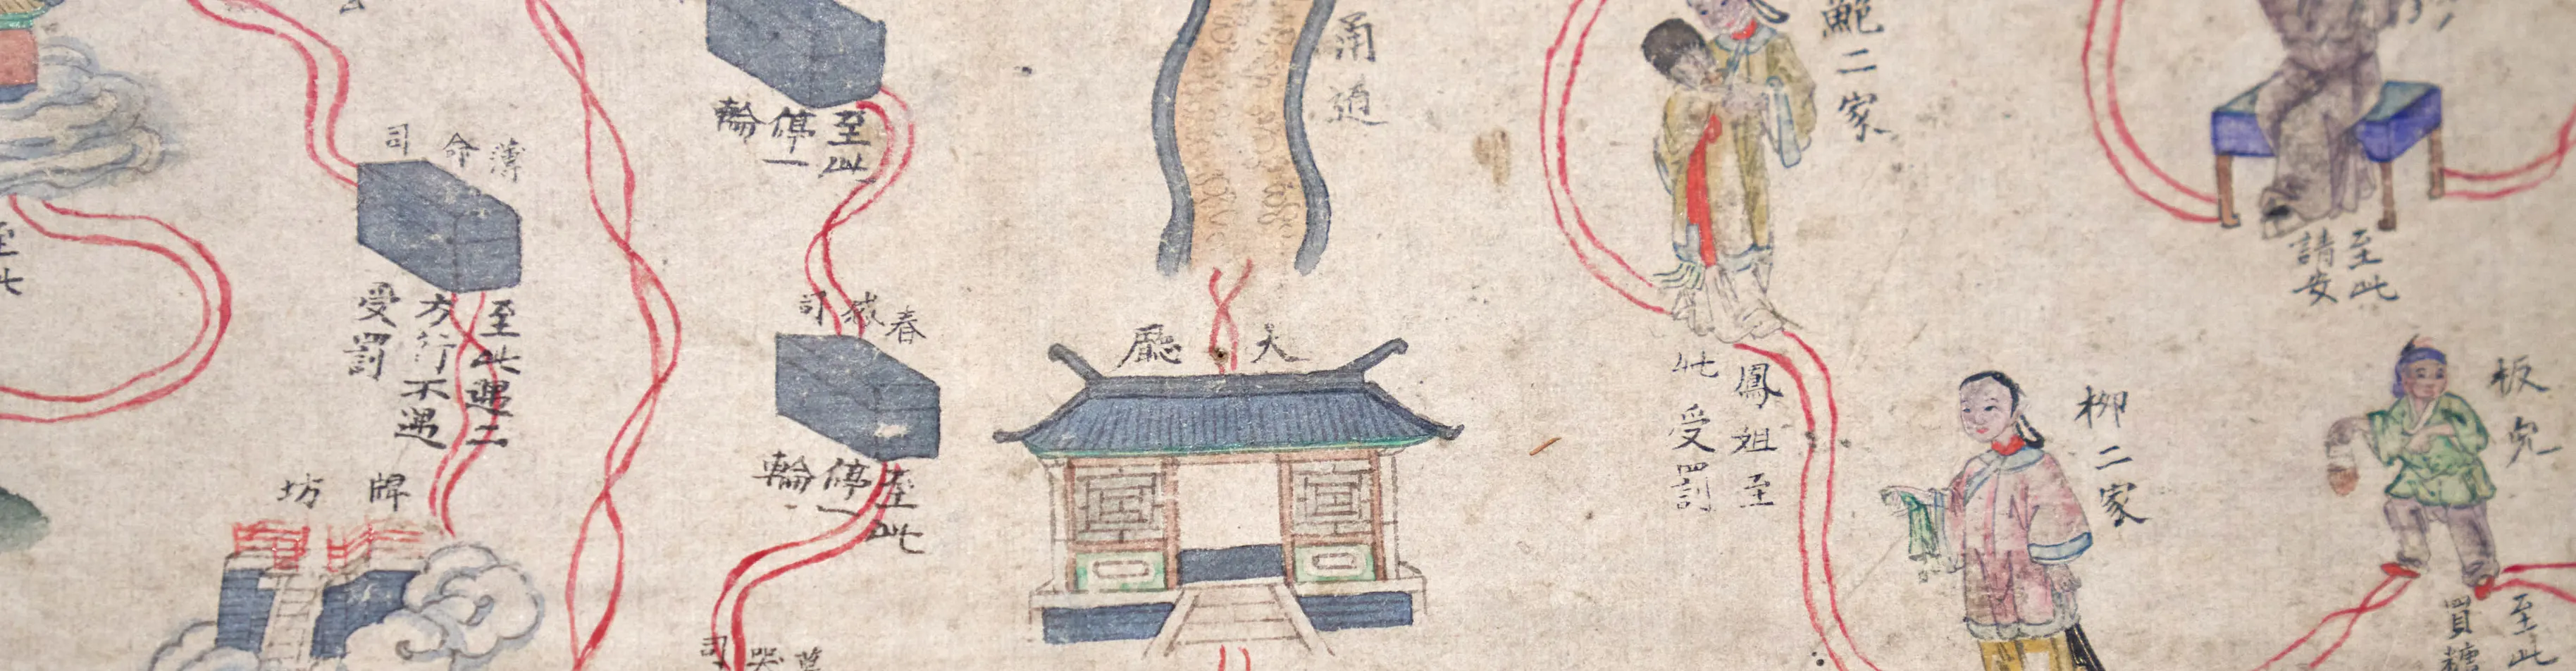 鮑二家
鳳姐至
此受罰
至此
請安
板兒
至此
買糖
柳二家
甬道
大廳
至此
停一
輪
春感司
至此
停一
輪
司
薄命司
至此遇二
方行不遇
受罰
牌坊
至此